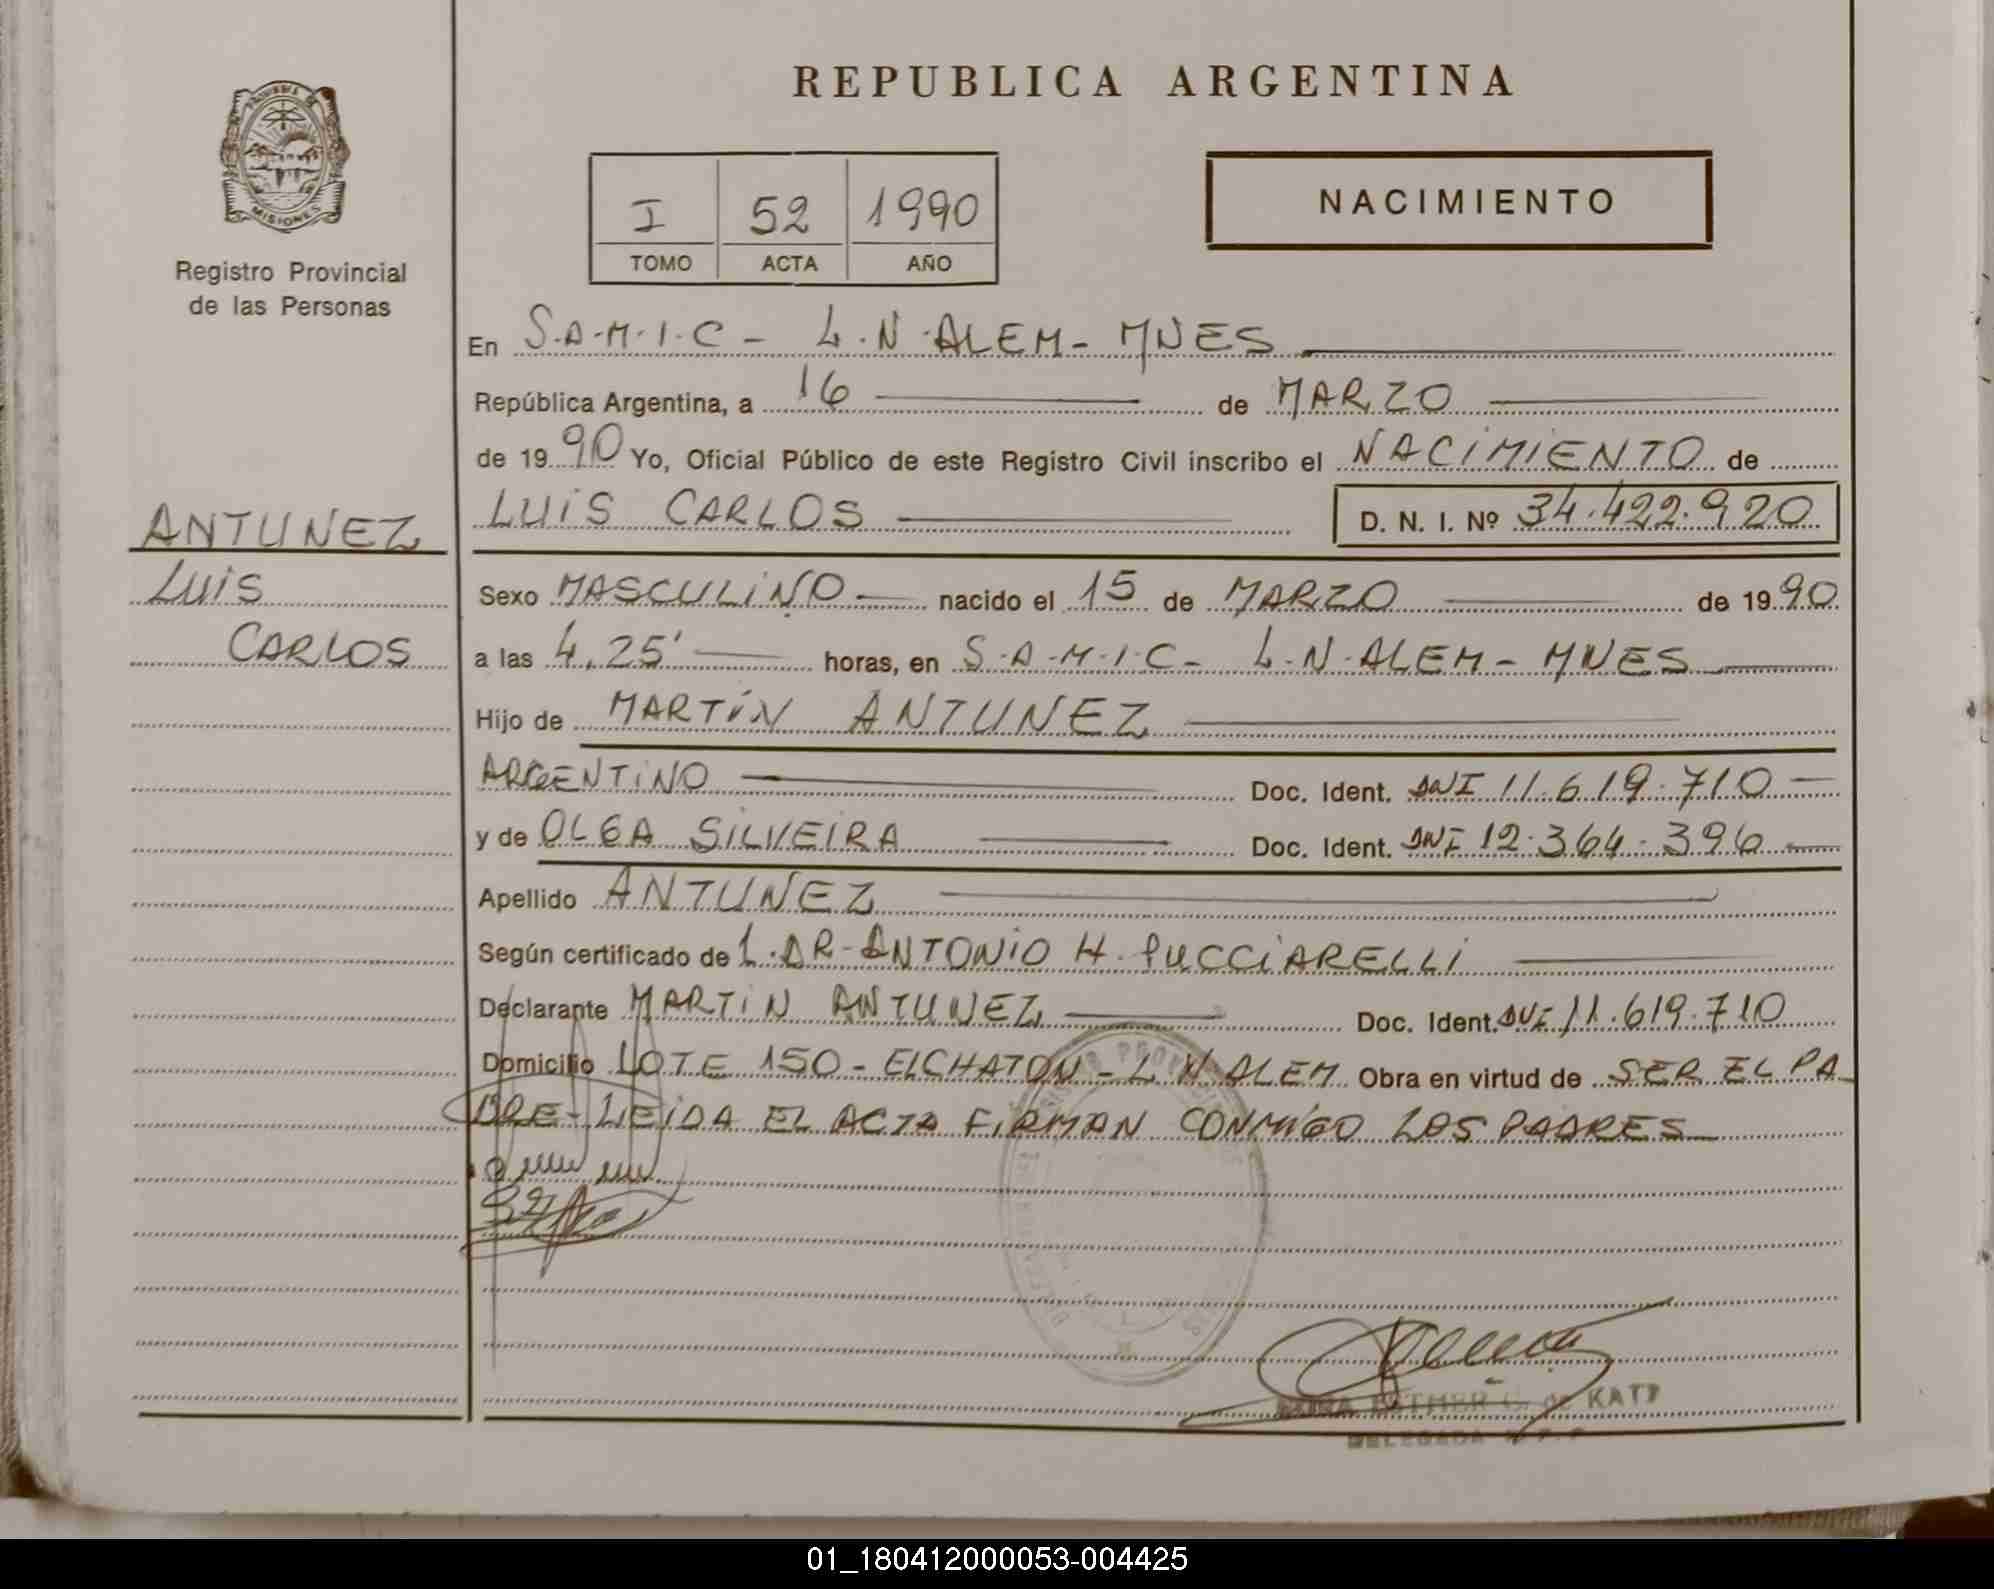 REPUBLICA ARGENTINA
MISIONES
Registro Provincial
de las Personas
I 52 1990
TOMO ACTA AÑO
NACIMIENTO
En S.A.M.I.C - L.N.ALEM - MNES
República Argentina, a 16 de MARZO
de 1990 Yo, Oficial Público de este Registro Civil inscribo el NACIMIENTO de
LUIS CARLOS D. N. I. Nº 34.422.920
ANTUNEZ
LUIS
CARLOS
Sexo MASCULINO nacido el 15 de MARZO de 1990
a las 4,25' horas, en S.A.M.I.C - L.N.ALEM - MNES
Hijo de MARTÍN ANTUNEZ
ARGENTINO Doc. Ident. DNI 11.619.710
y de OLGA SILVEIRA Doc. Ident. DNI 12.364.396
Apellido ANTUNEZ
Según certificado de L. DR-ANTONIO H. PUCCIARELLI
Declarante MARTIN ANTUNEZ Doc. Ident. DNI 11.619.710
Domicilio LOTE 150 - EL CHATON - L N ALEM Obra en virtud de SER EL PA
DRE - LEIDA EL ACTA FIRMAN CONMIGO LOS PADRES
ESTHER G. de KATT
DELEGADA
01_180412000053-004425